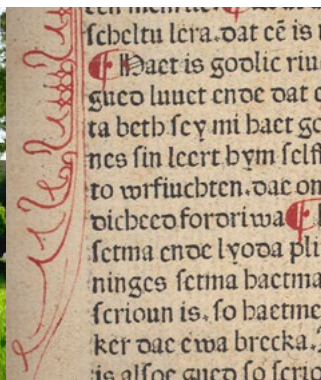 scheltu lera. dat cē is
Haet is godlic riu
gued luuet ende dat
ta beth sey mi haet
nes sin leert hym self
to wrfiuchten. dae
dicheed fordriwa
setma ende lyoda
ninges setma haetma
scrioun is. so haetme
ker dae ewa brecka.
is alsoe gued so